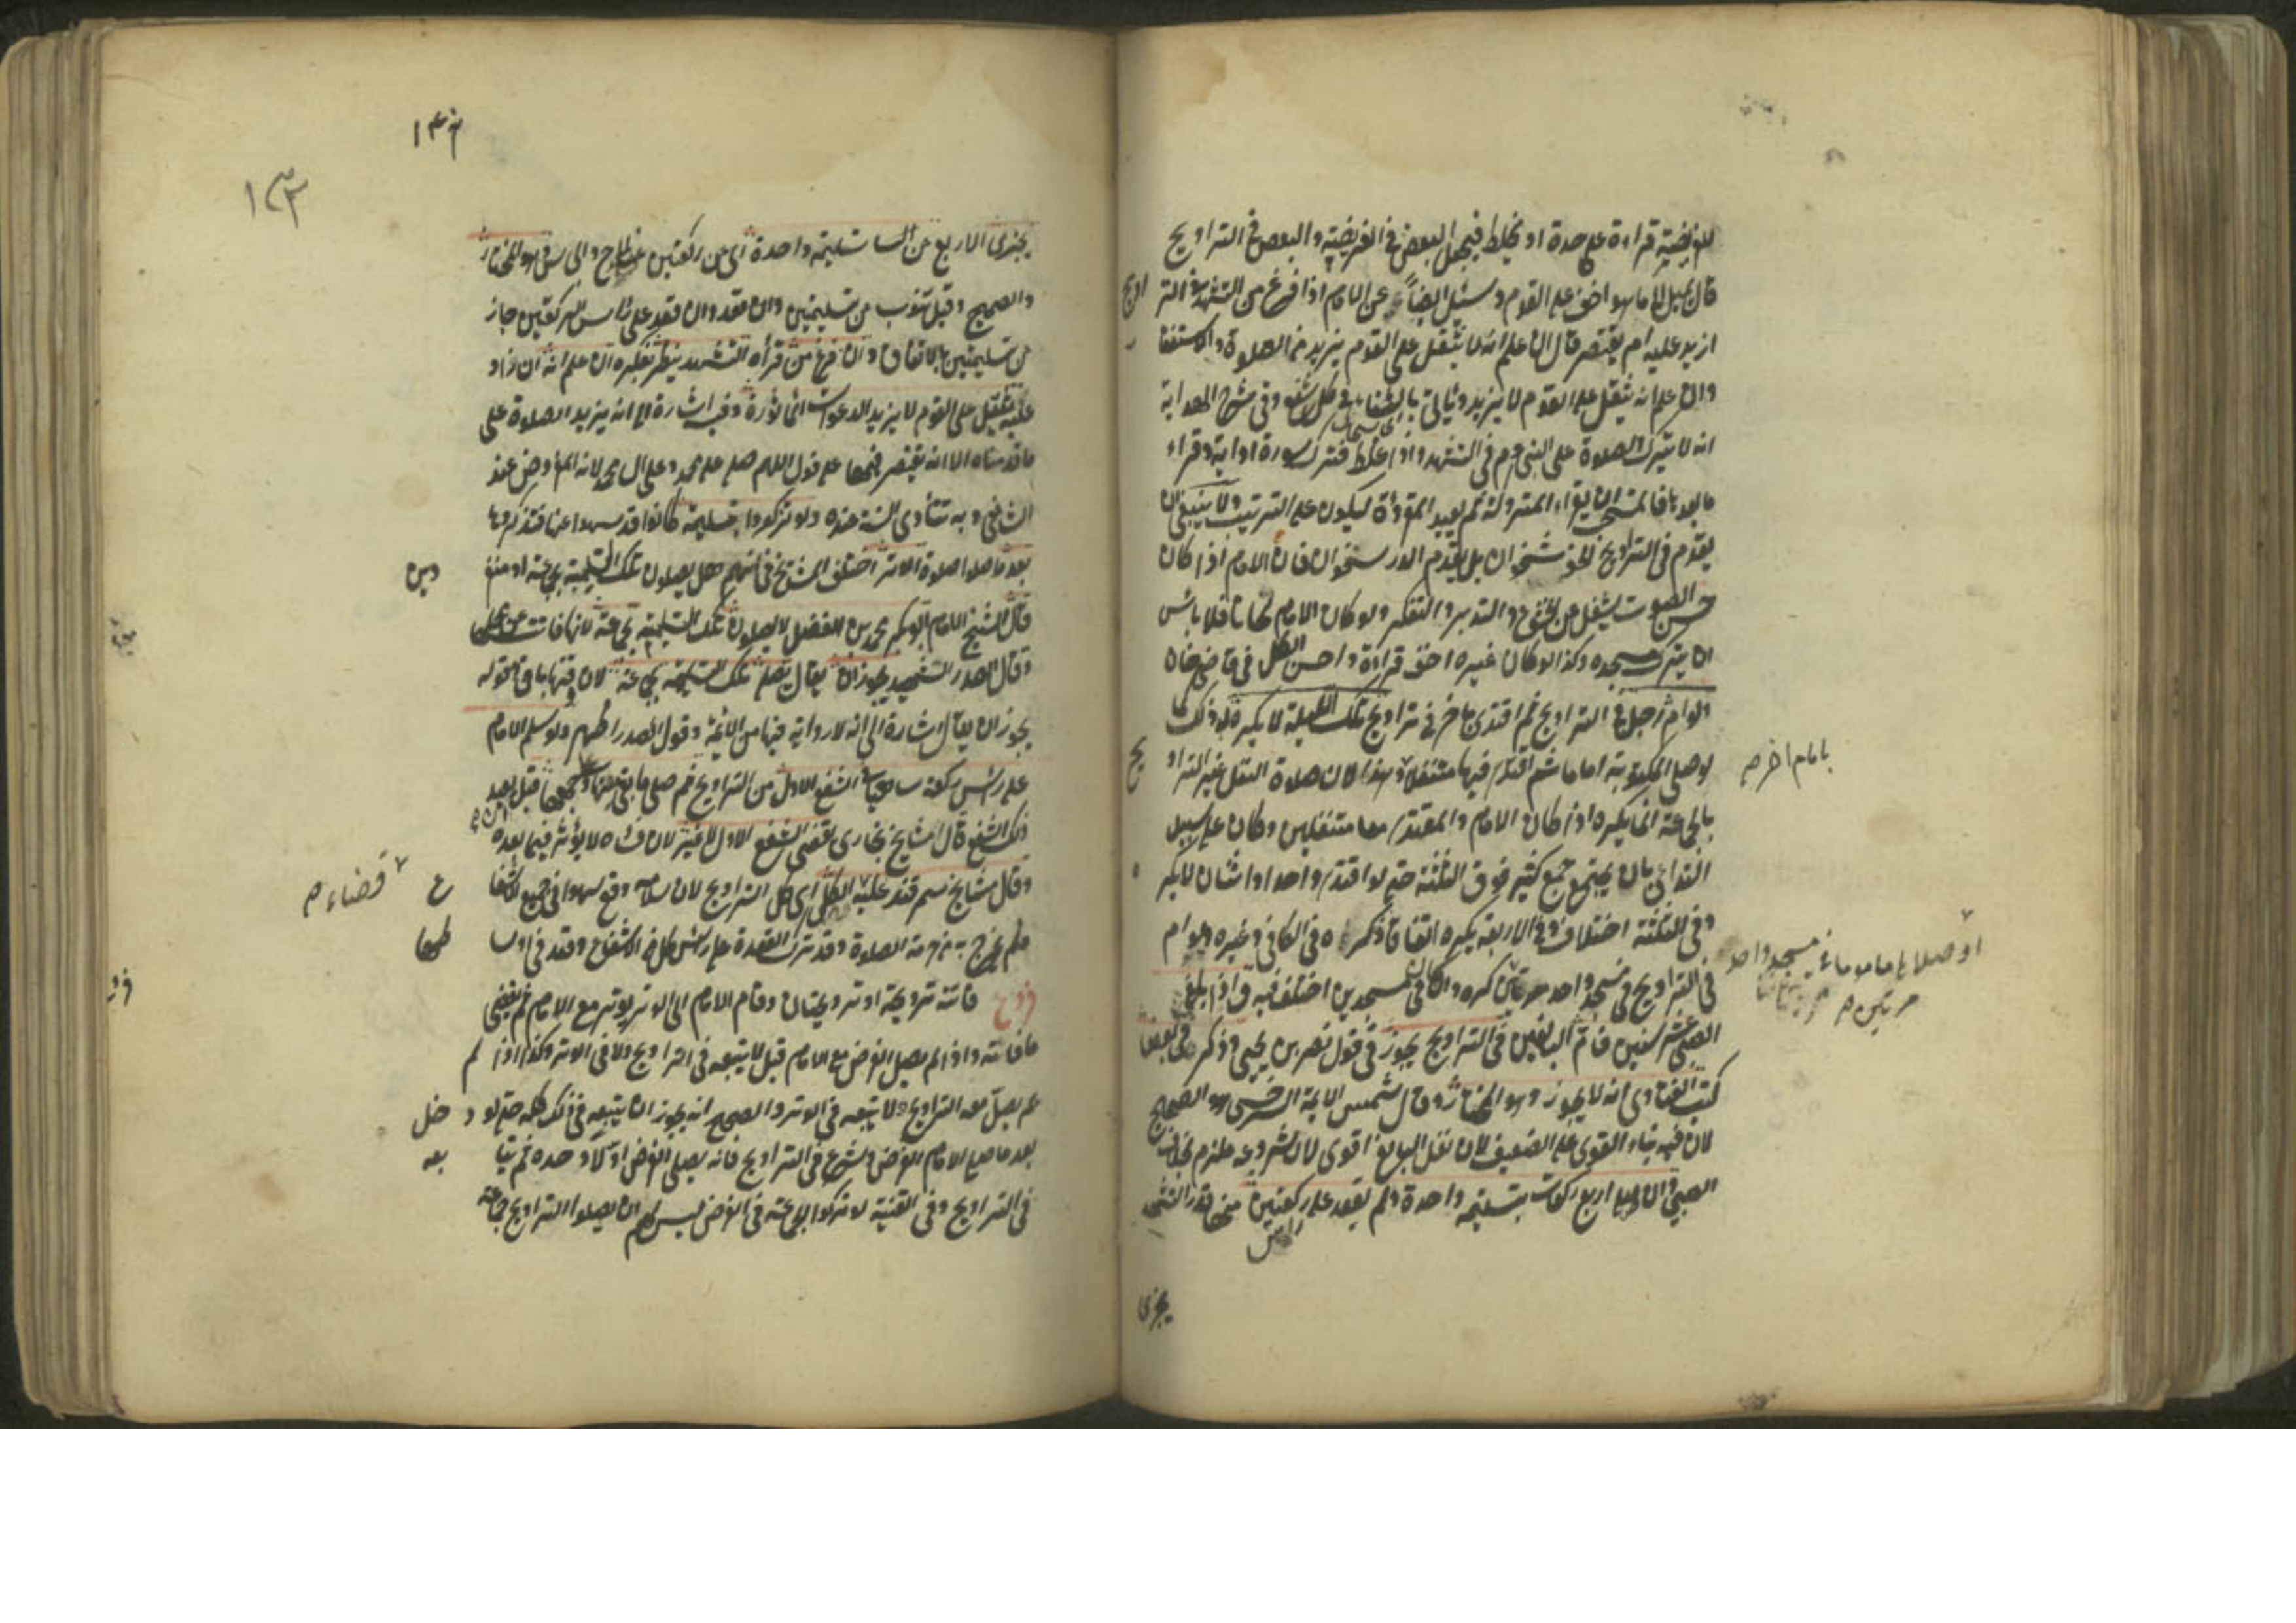 للفريضة قراءة على حدة او يخلط فيجعل البعض في الفريضة والبعض في التراويح
قال يميل الى ما هو اخف على القوم وسئل ايضا عن الامام اذا فرغ من التشهد في التراويح
ازيد عليه ام يقتصر قال ان علم انه لا يثقل على القوم يزيد من الصلوة والاستغفار
وان علم انه يثقل على القوم لا يزيد وياتى بالثناء في كل شفع وفى شرح الهداية
انه لا يترك الصلوة على النبى في التشهد واذا غلط فترك سورة او اية وقراء
ما بعدها فالمستحب ان يقراء المتروكة ثم يعيد المقروءة ليكون على الترتيب ولا ينبغى ان
يقدم في التراويح الخوشخوان بل يقدم الدرستخوان فان الامام اذا كان
حسن الصوت يشغل عن الخشوع والتدبر والتفكر ولو كان الامام لحانا فلا باس
ان يترك مسجده وكذا لو كان غيره اخف قراءة واحسن الكل في قاضيخان
ولو ام رجل في التراويح ثم اقتدى باخر في تراويح تلك الليلة لا يكره له ذلك كما
لو صلى المكتوبة اماما ثم اقتدى فيها متنفلا وهذا لان صلاة النفل غير التراويح
بالجماعة انما يكره اذا كان الامام والمقتدى معا متنفلين وكان على سبيل
التداعى بان يجتمع جمع كثير فوق الثلثة حتى لو اقتدى واحد او اثنان لا يكره
وفى الثلثة اختلاف وفى الاربعة يكره اتفاقا ذكره في الكافى وغيره ولو ام
في التراويح في مسجد واحد مرتين كره وان كان في المسجدين اختلف فيه واذا بلغ
الصبى عشر سنين فام البالغين في التراويح يجوز في قول نصر بن يحيى وذكر في بعض
كتب الفتاوى انه لا يجوز وهو المختار وقال شمس الائمة السرخسى هو الصحيح
لان فيه بناء القوى على الضعيف لان نفل البالغ اقوى لان شروعه ملزم بخلاف
الصبى وان صلى اربع ركعات بتسليمة واحدة ولم يقعد على ركعتين منها قدر التشهد
راس
يجزى
بامام اخر
او صلاها ماموما في مسجد واحد
مرتين
١٣٣
١٣٣
يجزى الاربع عن تسليمة واحدة اى عن ركعتين عند ابى ح وابى س هو المختار
والصحيح وقيل تنوب عن تسليمتين وان قعد على راس الركعتين جاز
عن تسليمتين بالاتفاق وان فرغ من قراءة التشهد ينظر بفكره ان علم انه ان زاد
عليه يثقل على القوم لا يزيد الدعوات الماثورة وفيه اشارة الى انه يزيد الصلوة على
ما قدمناه الا انه يقتصر فيها على قول اللهم صل على محمد وعلى ال محمد لانه المفروض عند
الشافعى وبه تتأدى السنة عنده ولو تذكروا تسليمة كانوا قد سهوا عنها فتذكروها
بعد ما صلوا صلوة الوتر اختلف المشايخ في انهم هل يصلون تلك التسليمة بجماعة او منفردين
قال الشيخ الامام ابو بكر محمد بن الفضل لا يصلون تلك التسليمة بجماعة لانها فاتت عن محلها
وقال الصدر الشهيد يجوز ان يقال تصلى تلك التسليمة بجماعة لان وقتها باق قوله
يجوز ان يقال اشارة الى انه لا رواية فيها من الائمة وقول الصدر اظهر ولو سلم الامام
على راس ركعة ساهيا في الشفع الاول من التراويح ثم صلى ما بقى منها قبل ان يعيد
ذلك الشفع قال مشايخ بخارى يقضى الشفع الاول لا غير لان فساده لا يؤثر فيما بعده
وقال مشايخ سمرقند عليه الكل اى كل التراويح لان سلامه وقع سهوا في جميع الاشفاع
فلم يخرج به من حرمة الصلوة وقد ترك القعدة على راس كل الاشفاع وقعد في اوسطها
قضاء
فروع فاتته ترويحة او ترويحتان وقام الامام الى الوتر يوتر مع الامام ثم يقضى
ما فاته واذا لم يصل الفرض مع الامام قيل لا يتبعه في التراويح ولا في الوتر وكذا اذا لم
يصل معه التراويح لا يتبعه في الوتر والصحيح انه يجوز ان يتبعه في ذلك كله حتى لو دخل
بعد ما صلى الامام الفرض وشرع في التراويح فانه يصلى الفرض اولا وحده ثم يتابعه
في التراويح وفى القنية لو تركوا الجماعة في الفرض ليس لهم ان يصلوا التراويح جماعة